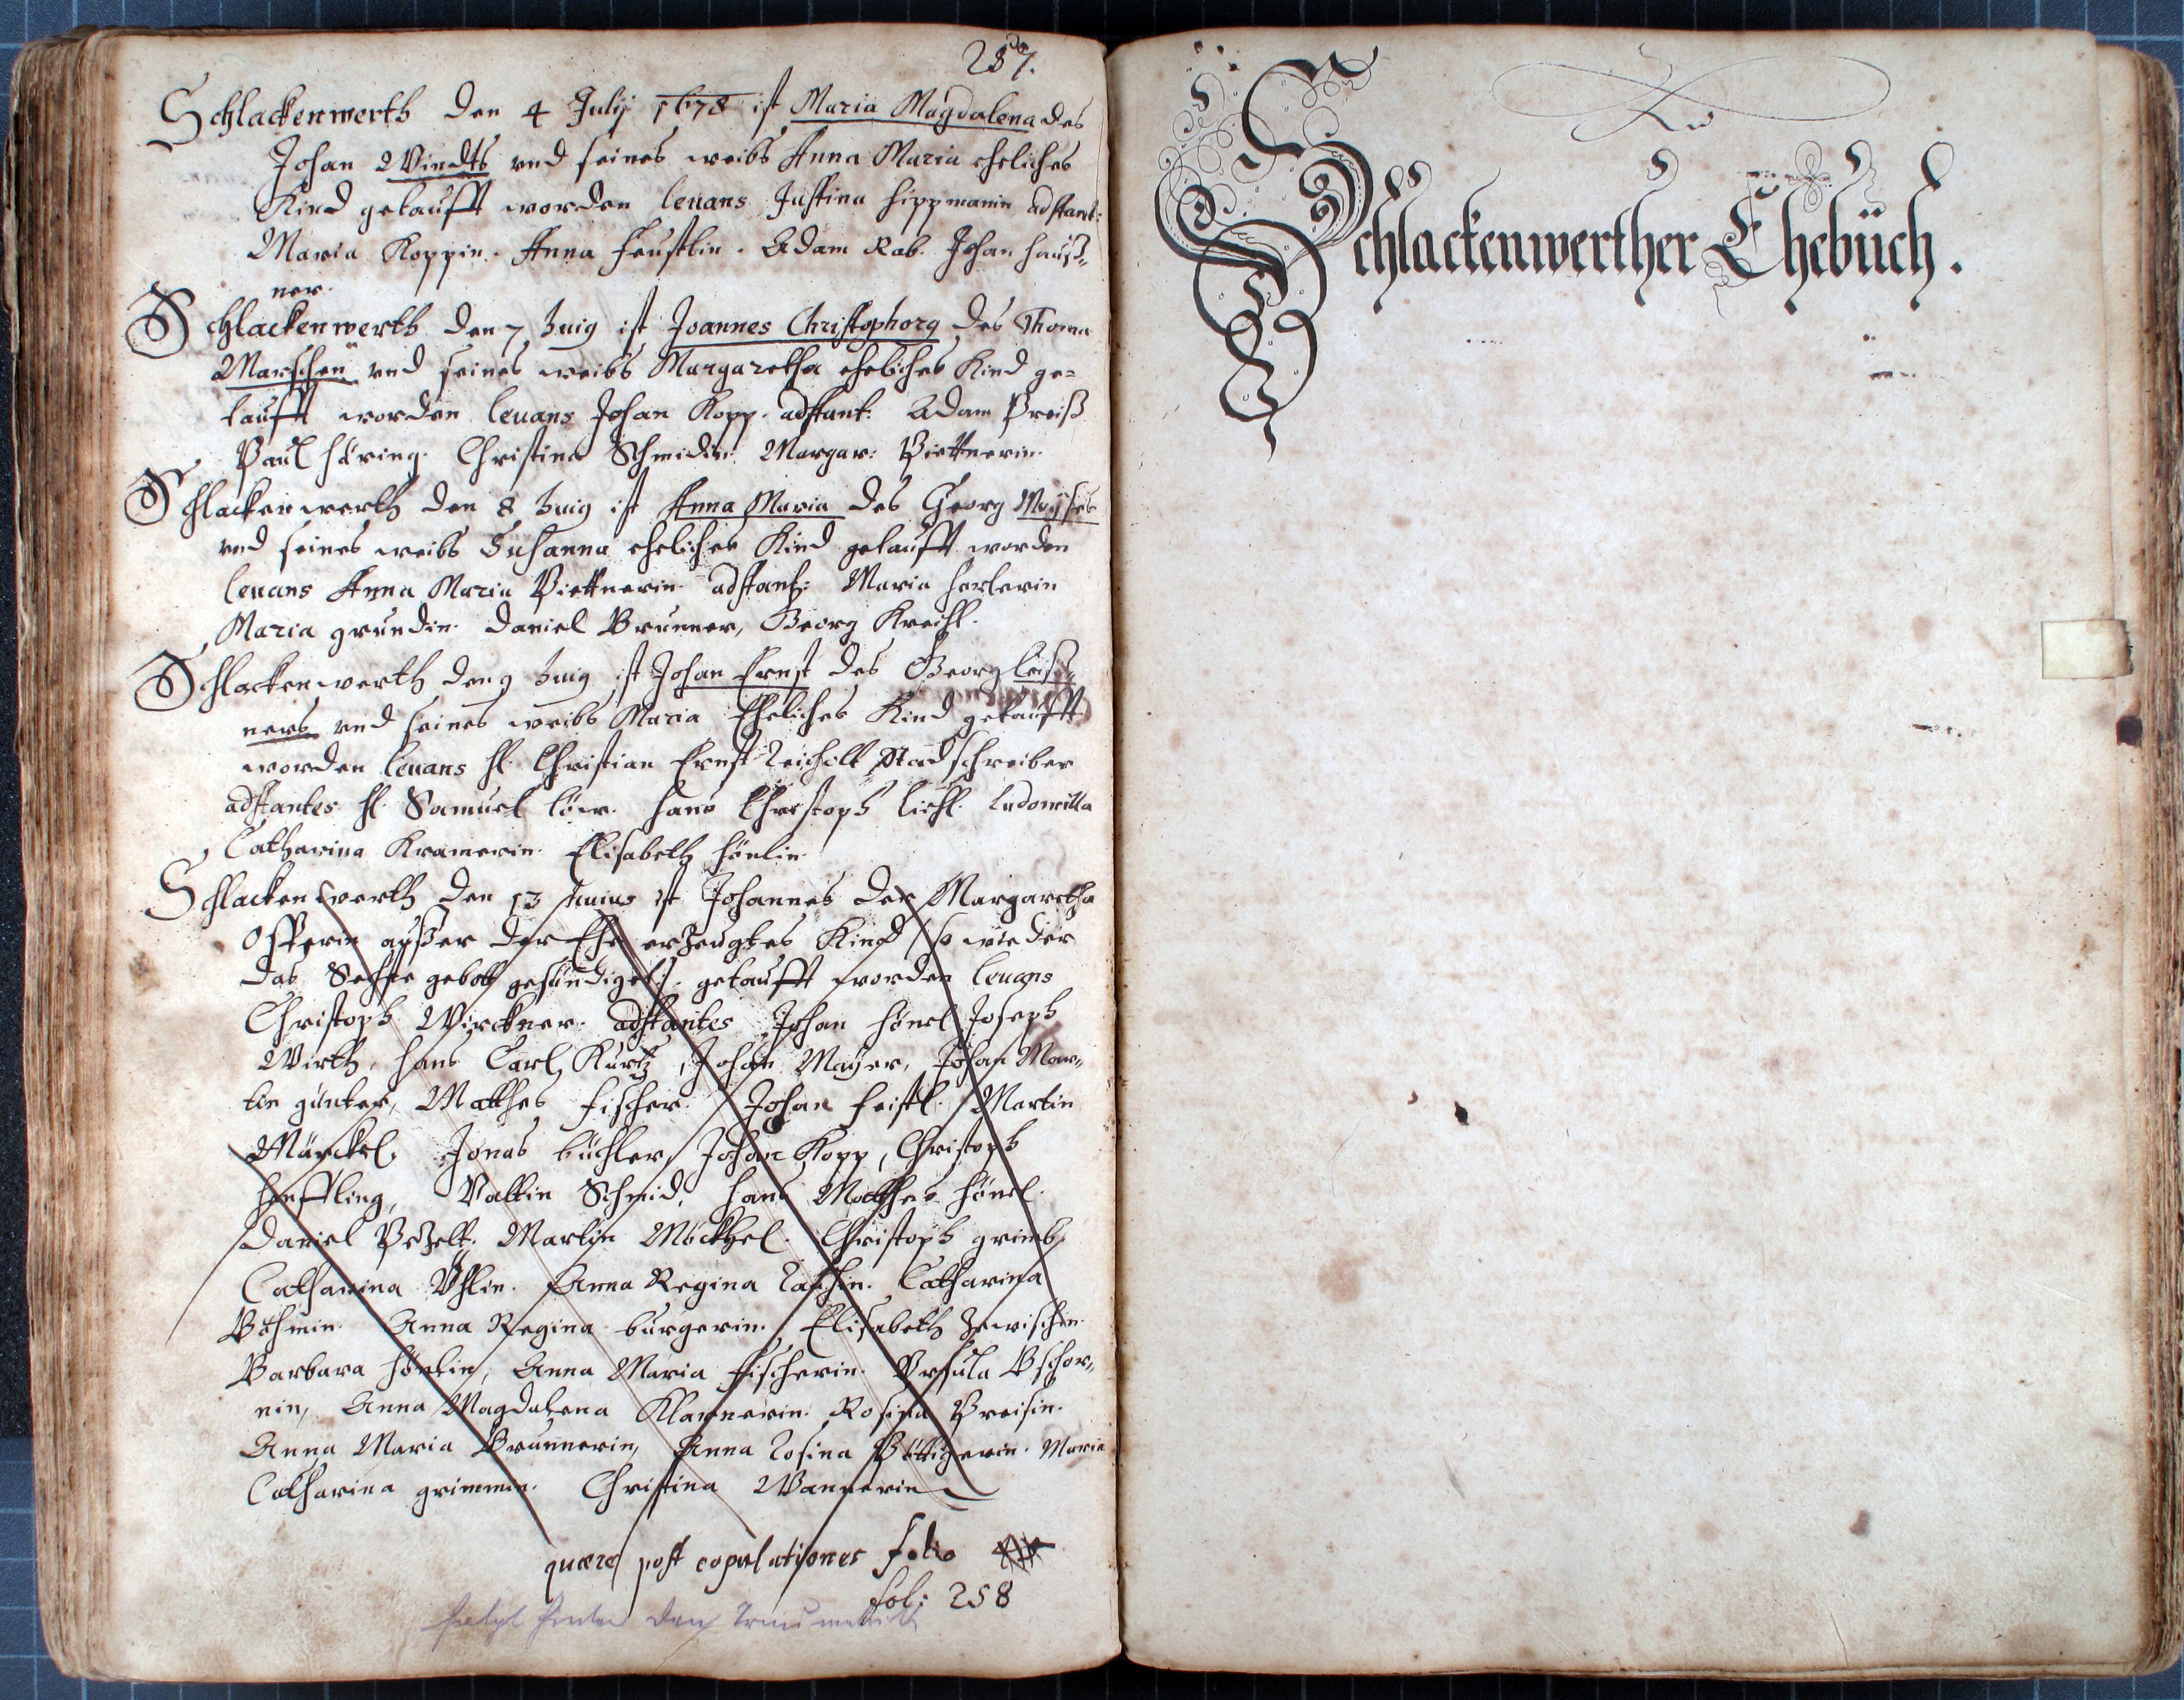 257.
Schlackenwerth den 4 Julij 1678 ist Maria Magdalena des
Johan Windts vnd seines weibs Anna Maria eheliches
Kind getaufft worden levans Justina Hippmanin adstant:
Maria Koppin. Anna Feustlin. Adam Rab. Johan Hauß-
ner.
Schlackenwerth den 7 huig ist Joannes Christophorg des Thoma
Marschen vnd seines weibs Margaretha eheliches Kind ge=
taufft worden levans Johan Kopp. adstant: Adam Preiß
Paul Häring. Christina Schmidin. Margar: Piettnerin.
Schlackenwerth den 8 huig ist Anna Maria des Georg Moÿses
vnd seines weibs Susanna eheliches Kind getaufft worden
levans Anna Maria Piettnerin. adstant: Maria Herlerin
Maria grundin. Daniel Brunner, Georg Kreihl.
Schlackenwerth den 9 huig ist Johan Ernst des Georg Leiß-
ners vnd seines weibs Maria Eheliches Kind getaufft
worden levans H. Christian Ernst Reicholt Stadschreiber
adstantes H. Samuel Löw. Hans Christoph Liehl. Ludomilla
Catharina Kramerin. Elisabeth Hönlin.
Schlackenwerth den 13 huius ist Johannes der Margaretha
Osserin außer der Ehe erzeugtes Kind /: so wieder
das Sechste gebott gesündiget :/. getaufft worden levans
Christoph Wirckner. adstantes Johan Hönel Joseph
Wirth, Hans Carl Kurtz, Johan Mayer, Johan Mar-
tin günter, Matthes Fischer. Johan Feistl. Martin
Märckel, Jonas büchler, Johan Kopp, Christoph
Henffling, Valtin Schmid, Hans Matthes Hönel.
Daniel Pezelt. Martin Möckhel. Christoph grimb,
Catharina Vhlin. Anna Regina Catharina
Böhmin. Anna Regina burgerin. Elisabeth
Barbara Hönlin, Anna Maria Fischerin. Vrsula Bschor-
nin, Anna Magdalena Klarnerin. Rosina Preisin.
Anna Maria Brunnerin, Anna Rosina Böttigerin. Maria
Catharina grimmin. Christina Wannerin
quære post copulationes folio
fol: 258
folgt hinter den
Schlackenwerther Ehebüch.